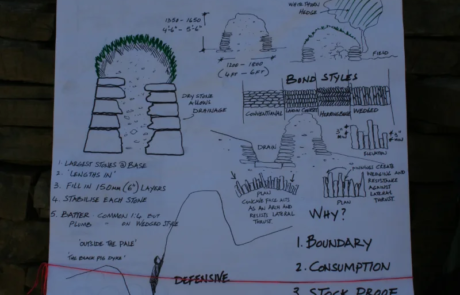 1350 - 1650
4'-6" - 5'-6"
WITH PANEL
HEDGE
1200 - 1800
(4 FT - 6 FT)
FIELD
DRY STONE
ALLOWS
DRAINAGE
BOND STYLES
CONVENTIONAL
HERRINGBONE
WEDGED
DRAIN
ELEVATION
PLAN
CONCAVE FACE ACTS
AS AN ARCH AND
RESISTS LATERAL
THRUST
PLAN
AGAINST
LATERAL
THRUST
1. LARGEST STONES @ BASE
2. LENGTHS IN
3. FILL IN 150mm (6") LAYERS
4. STABILISE EACH STONE
5. BATTER COMMON 1:6 BUT
PLUMB ON WEDGED STYLE
'OUTSIDE THE PALE'
DEFENSIVE
WHY?
1. BOUNDARY
2. CONSUMPTION
3 STOCK PROOF